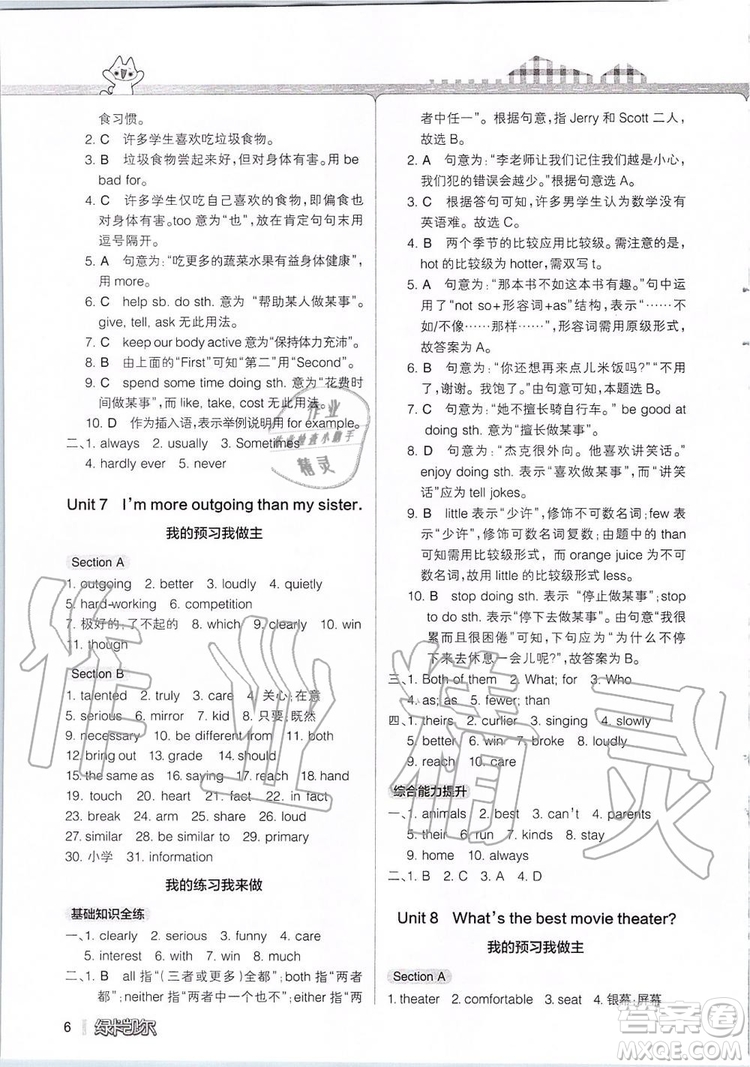 食习惯。
2. C 许多学生喜欢吃垃圾食物。
3. B 垃圾食物尝起来好，但对身体有害。用 be
bad for.
4. C 许多学生仅吃自己喜欢的食物，即偏食也
对身体非常有害。too 意为“也”，放在肯定句句末用
逗号隔开。
5. A 句意为：“吃更多的蔬菜水果有益身体健康”，
用 more。
6. C help sb. do sth. 意为“帮助某人做某事”。
give, tell, ask 无此用法。
7. C keep our body active 意为“保持体力充沛”。
8. B 由上面的“First”可知“第二”用“Second”。
9. C spend some time doing sth. 意为“花费时
间做某事”，而 like, take, cost 无此用法。
10. D 作为插入语，表示举例说明用 for example。
二、1. always 2. usually 3. Sometimes
4. hardly ever 5. never
Unit 7 I'm more outgoing than my sister.
我的预习我做主
Section A
1. outgoing 2. better 3. loudly 4. quietly
5. hard-working 6. competition
7. 极好的，了不起的 8. which 9. clearly 10. win
11. though
Section B
1. talented 2. truly 3. care 4. 关心；在意
5. serious 6. mirror 7. kid 8. 只要；既然
9. necessary 10. be different from 11. both
12. bring out 13. grade 14. should
15. the same as 16. saying 17. reach 18. hand
19. touch 20. heart 21. fact 22. in fact
23. break 24. arm 25. share 26. loud
27. similar 28. be similar to 29. primary
30. 小学 31. information
我的练习我来做
基础知识全练
一、1. clearly 2. serious 3. funny 4. care
5. interest 6. with 7. win 8. with
二、1. B all 指“（三者或更多）全都”；both 指“两者
都”；neither 指“两者中一个也没有”；either 指“两
者中任一”。根据句意，指 Jerry 和 Scott 二人，
故选 B。
2. A 句意为：“李老师让我们记住我们越小心，
我们犯的错误会越少”。根据句意选 A。
3. C 根据句意可知，许多男学生认为数学没有
英语难。故选 C。
4. B 两个季节的比较应用比较级。需注意的是
hot 的比较级为 hotter，需双写 t。
5. A 句意为：“那本书不如这本书有趣。”句中运
用了“not so+形容词+as”结构，表示“……不
如/不像……那样……”，形容词需用原级形式，
故答案为 A。
6. B 句意为：“你还想再来点儿米饭吗？”“不用
了，谢谢。我饱了。”由句意可知，本题选 B。
7. C 句意为：“她不擅长骑自行车。”be good at
doing sth. 意为“擅长做某事”。
8. B 句意为：“杰克很外向。他喜欢讲笑话。”
enjoy doing sth. 表示“喜欢做某事”。而“讲笑
话”应为 tell jokes。
9. B little 表示“少许”，修饰不可数名词；few 表
示“少许”，修饰可数名词复数；由题中的 than
可知要用比较级形式，而 orange juice 为不可
数名词，故用 little 的比较级形式 less。
10. B stop doing sth. 表示“停止做某事”；stop
to do sth. 表示“停下去做某事”。由句意“我很
累而且很困倦”可知，下句应为“为什么不停
下来去休息一会儿呢？”故答案为 B。
三、1. Both of them 2. What; for 3. Who
4. as; as 5. fewer; than
四、1. theirs 2. curlier 3. singing 4. slowly
5. better 6. win 7. broke 8. louder
9. reach 10. care
综合能力提升
一、1. animals 2. best 3. can't 4. parents
5. their 6. run 7. kinds 8. stay
9. home 10. always
二、1. B 2. C 3. A 4. A 5. D
Unit 8 What's the best movie theater?
我的预习我做主
Section A
1. theater 2. comfortable 3. seat 4. 银幕；屏幕
6 绿卡凯尔
作业精灵
答案圈
MXQE.COM